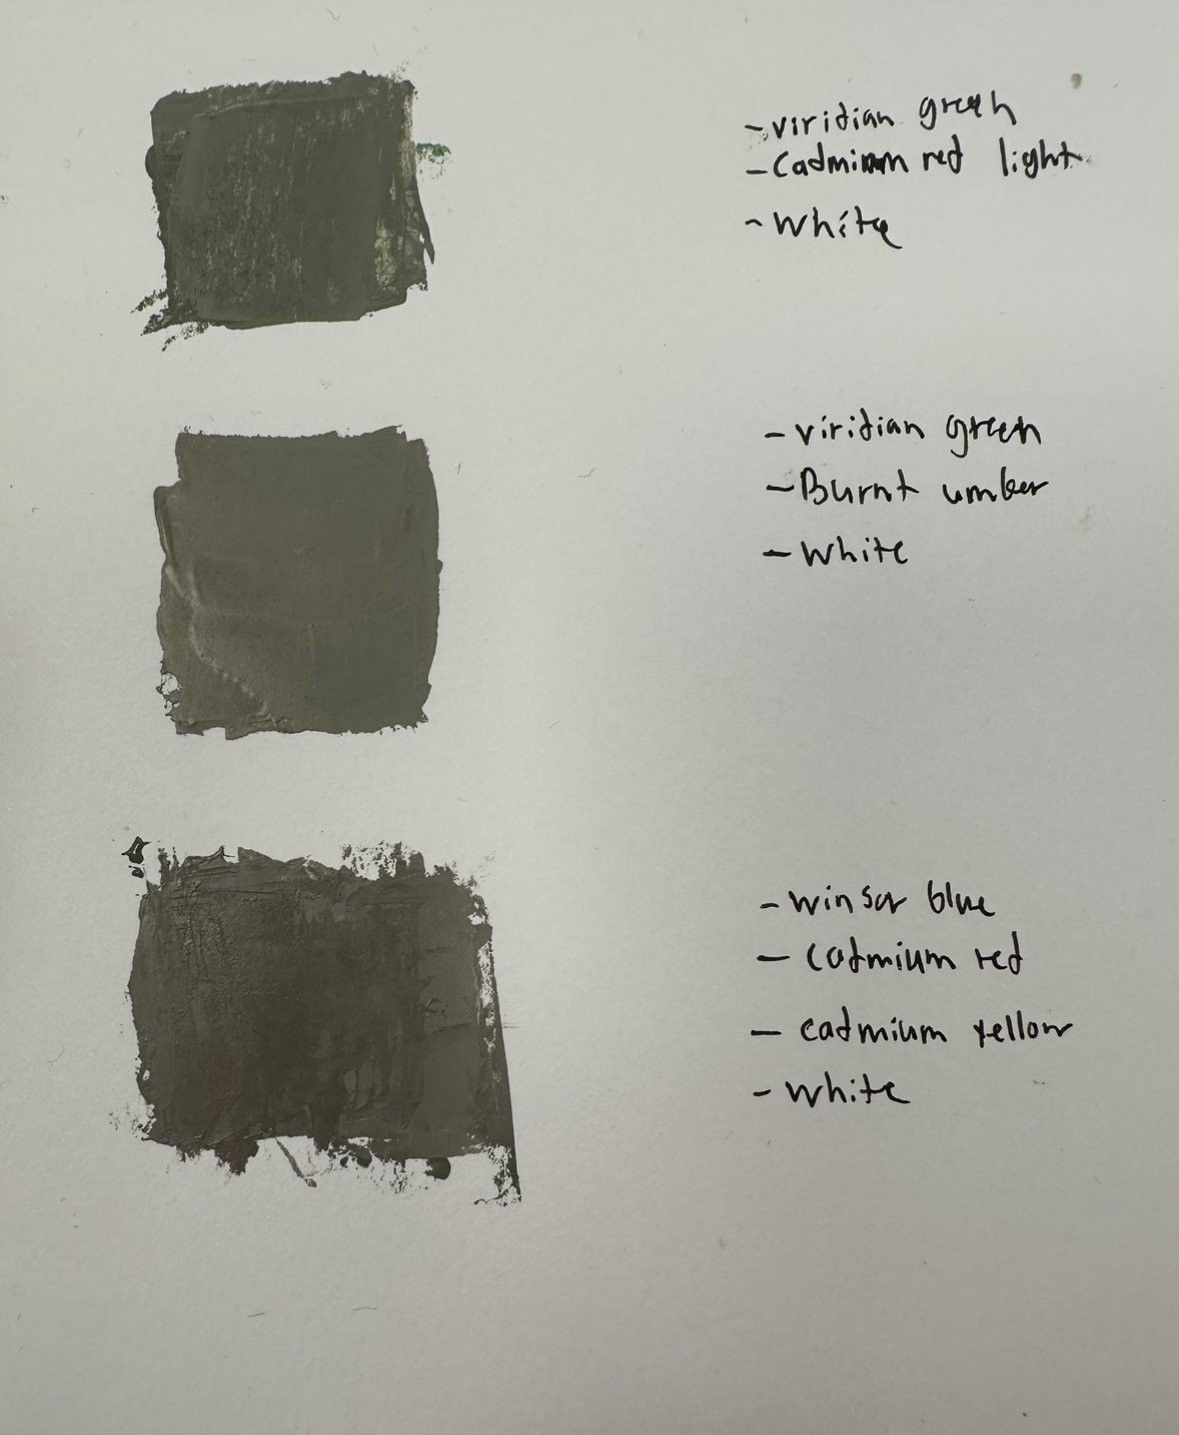 - viridian green
- Cadmium red light
- white
- viridian green
- Burnt umber
- white
- winsor blue
- cadmium red
- cadmium yellow
- white